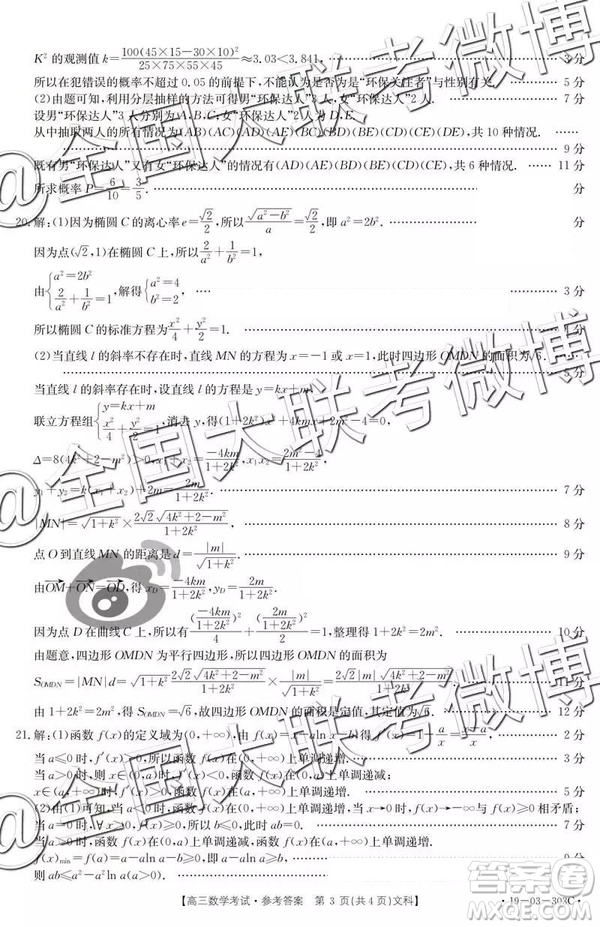 K² 的观测值 k=100(45×15-30×10)²/(25×75×55×45)≈3.03<3.841, 3 分
所以在犯错误的概率不超过 0.05 的前提下,不能认为是否为“环保关注者”与性别有关. 5 分
(2)由题可知,利用分层抽样的方法可得男“环保达人”3人,女“环保达人”2人. 7 分
设男“环保达人”3人分别为A,B,C;女“环保达人”2人为D,E.
从中抽取两人的所有情况为(AB)(AC)(AD)(AE)(BC)(BD)(BE)(CD)(CE)(DE),共 10 种情况.
9 分
既有男“环保达人”又有女“环保达人”的情况有(AD)(AE)(BD)(BE)(CD)(CE),共 6 种情况. 11 分
所求概率 P=6/10=3/5. 分
20.解:(1)因为椭圆 C 的离心率 e=√2/2,所以√(a²-b²)/a=√2/2,即 a²=2b². 分
因为点(√2,1)在椭圆 C 上,所以2/a²+1/b²=1.
由{a²=2b², 2/a²+1/b²=1,解得{a²=4, b²=2. 3 分
所以椭圆 C 的标准方程为x²/4+y²/2=1. 分
(2)当直线 l 的斜率不存在时,直线 MN 的方程为 x=-1 或 x=1,此时四边形 OMDN 的面积为√6.
5 分
当直线 l 的斜率存在时,设直线 l 的方程是 y=kx+m
联立方程组{y=kx+m, x²/4+y²/2=1,消去 y,得(1+2k²)x²+4kmx+2m²-4=0
Δ=8(4k²+2-m²)>0,x₁+x₂=-4km/(1+2k²),x₁x₂=(2m²-4)/(1+2k²)
y₁+y₂=k(x₁+x₂)+2m=2m/(1+2k²). 7 分
|MN|=√(1+k²)×2√2√(4k²+2-m²)/(1+2k²) 8 分
点 O 到直线 MN 的距离是 d=|m|/√(1+k²) 9 分
由OM+ON=OD,得 x_D=-4km/(1+2k²),y_D=2m/(1+2k²)
因为点 D 在曲线 C 上,所以有(-4km/(1+2k²))²/4+(2m/(1+2k²))²/2=1,整理得 1+2k²=2m². 10 分
由题意,四边形 OMDN 为平行四边形,所以四边形 OMDN 的面积为
S_OMDN=|MN|d=√(1+k²)2√2√(4k²+2-m²)/(1+2k²)×|m|/√(1+k²)=2√2|m|√(4k²+2-m²)/(1+2k²) 11 分
由 1+2k²=2m², 得S_OMDN=√6,故四边形 OMDN 的面积是定值,其定值为√6. 12 分
21.解:(1)函数 f(x)的定义域为(0,+∞),由 f(x)=x-aln x-b 可得 f′(x)=1-a/x=(x-a)/x 分
当 a≤0 时,f′(x)>0,所以函数 f(x)在(0,+∞)上单调递增. 3 分
当 a>0 时,则 x∈(0,a)时,f′(x)<0,所以函数 f(x)在(0,a)上单调递减;
当 x∈(a,+∞)时,f′(x)>0,所以函数 f(x)在(a,+∞)上单调递增. 5 分
(2)由(1)可知,当 a<0 时,函数 f(x)在(0,+∞)上单调递增,当 x→0 时,f(x)→-∞与 f(x)≥0 相矛盾;
当 a=0 时,∀x>0,f(x)≥0,所以b≤0,此时 ab=0. 7 分
当 a>0 时,函数 f(x)在(0,a)上单调递减,函数 f(x)在(a,+∞)上单调递增.
f(x)min=f(a)=a-aln a-b≥0,即 a-aln a≥b, 9 分
则 ab≤a²-a²ln a(a>0).
【高三数学考试·参考答案 第 3 页(共 4 页)文科】
·19-03-303C·
@全国大联考微博
@全国大联考微博
@全国大联考微博
答案圈
MXEQ.COM